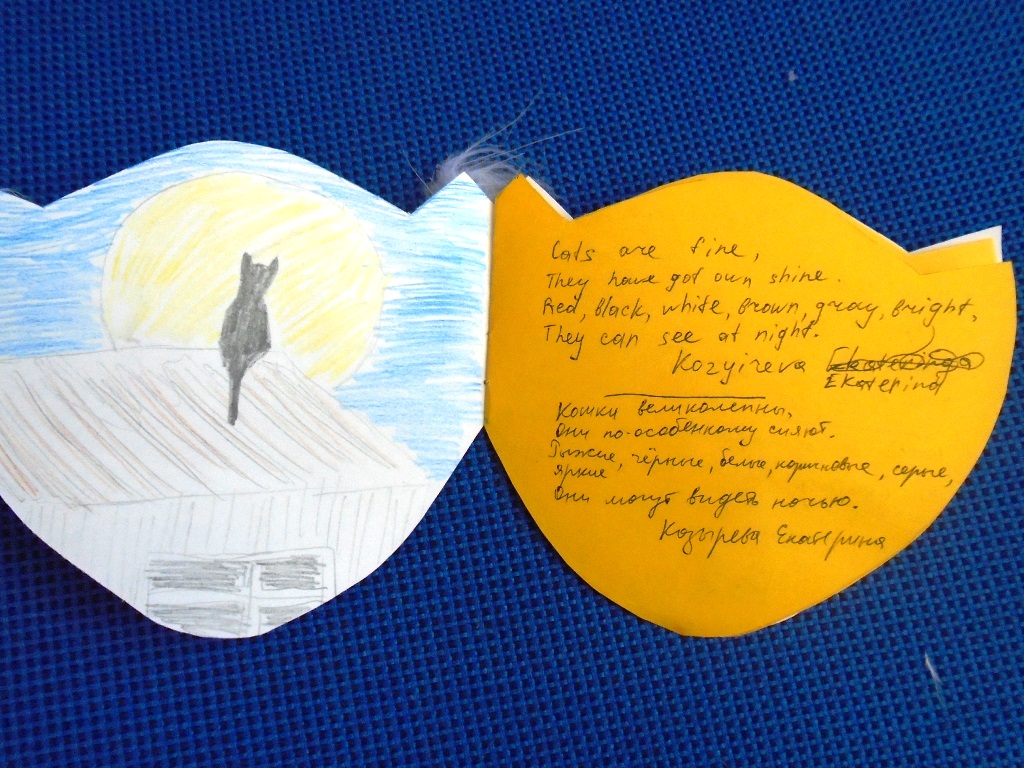 Cats are fine,
They have got own shine.
Red, black, white, brown, gray, bright,
They can see at night.
Kozyireva Ekaterina
Ekaterina
Кошки великолепны,
Они по-особенкому сияют.
Рыжие, чёрные, белые, коричневые, серые,
яркие
Они могут видеть ночью.
Козырева Екатерина